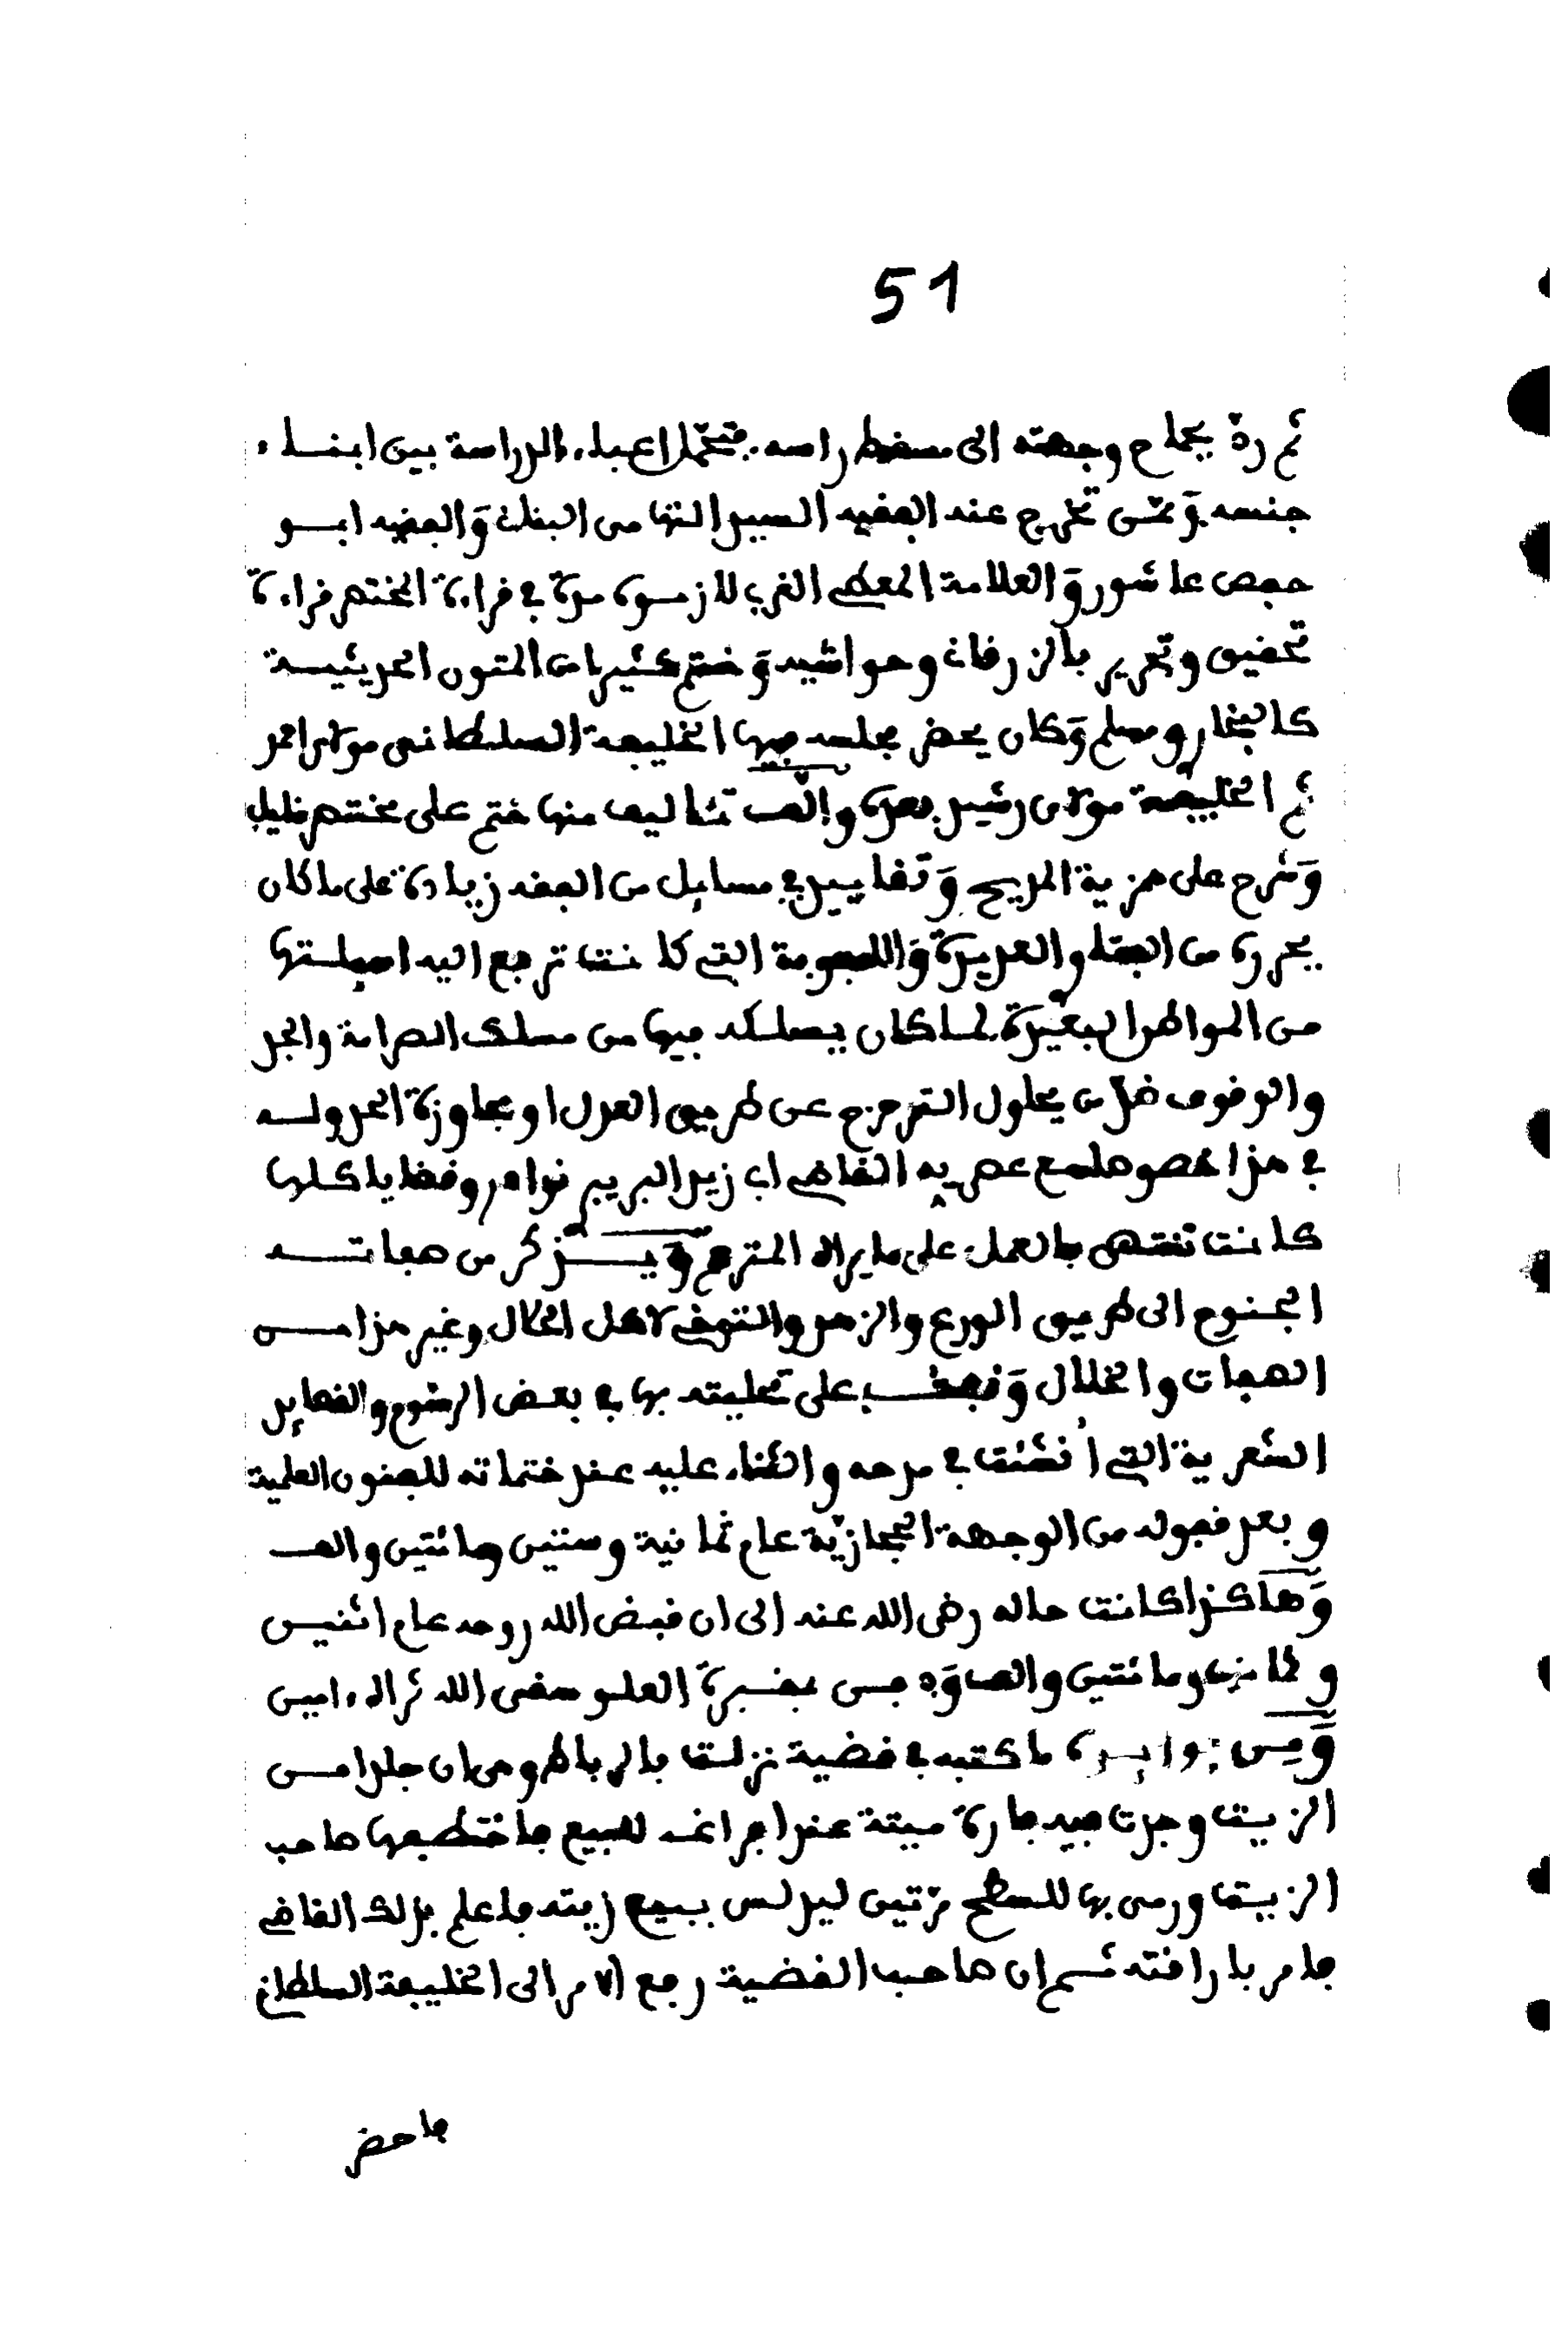 51
ثم ردّ بجماح وجهته الى مسقط راسه فتحمّل اعباء الدراسة بين ابناء
جنسه وَممّن تخرج عند الفقيه السيد التهامى البناني وَالفقيه ابو
حفص عاشور وَالعلامة المعطى الغربي لازموه مدة في قراءة المختصر قراءة
تحقيق وتحرير بالزرقاني وحواشيه وَختم كثيرا من المتون الحديثية
كالبخاري ومسلم وَكان يحضر مجلسه فيها الخليفة السلطانى مولاى احمد
ثم الخليفة مولاى رشيد بعده وألّف تئاليف منها ختم على مختصر خليل
وَشرح على همزية المديح وَتقاييد في مسايل من الفقه زيادة على ما كان
يحرره من الفتاوي العديدة وَالاجوبة التى كانت ترجع اليه اسئلتها
من المواطن البعيدة لما كان يسلكه فيها من مسلك الصرامة والجد
والوقوف ضدّ من يحاول التزحزح عن طريق العدل او مجاوزة الحد وله
في هذا خصوصا مع عصريه القاضى ابي زيد البريبري نوادر وقضايا كلها
كانت تنتهى بالعمل على ما يراه المترجم وَيـذكر من صفاته
الجنوح الى طريق الورع والزهد والتوخى لاهل الكمال وغير هذا من
الصفات والخلال وَنقف على تحليته بها في بعض الرسوم والقصايد
الشعرية التى أنشئت في مدحه والثناء عليه عند ختماته للفنون العلمية
وبعد قفوله من الوجهة الحجازيّة عام ثمانية وستين ومائتين والف
وَهاكذا كانت حاله رضى الله عنه الى ان قبض الله روحه عام اثنين
وثمانين ومائتين والف وَدفن بمقبرة العلو سقى الله ثراه ءامين
وَمن فوايده ما كتبه في قضية نزلت بالرباط وهى ان جلدا من
الزيت وجدت فيه فارة ميتة عند افراغه للبيع فاختطفها صاحب
الزيت ورمى بها للسطح مرّتين ليدلس ببيع زيته فاعلم بذلك القاضى
فامر باراقته ثم ان صاحب القضية رجع الامر الى الخليفة السلطاني
فاحضر